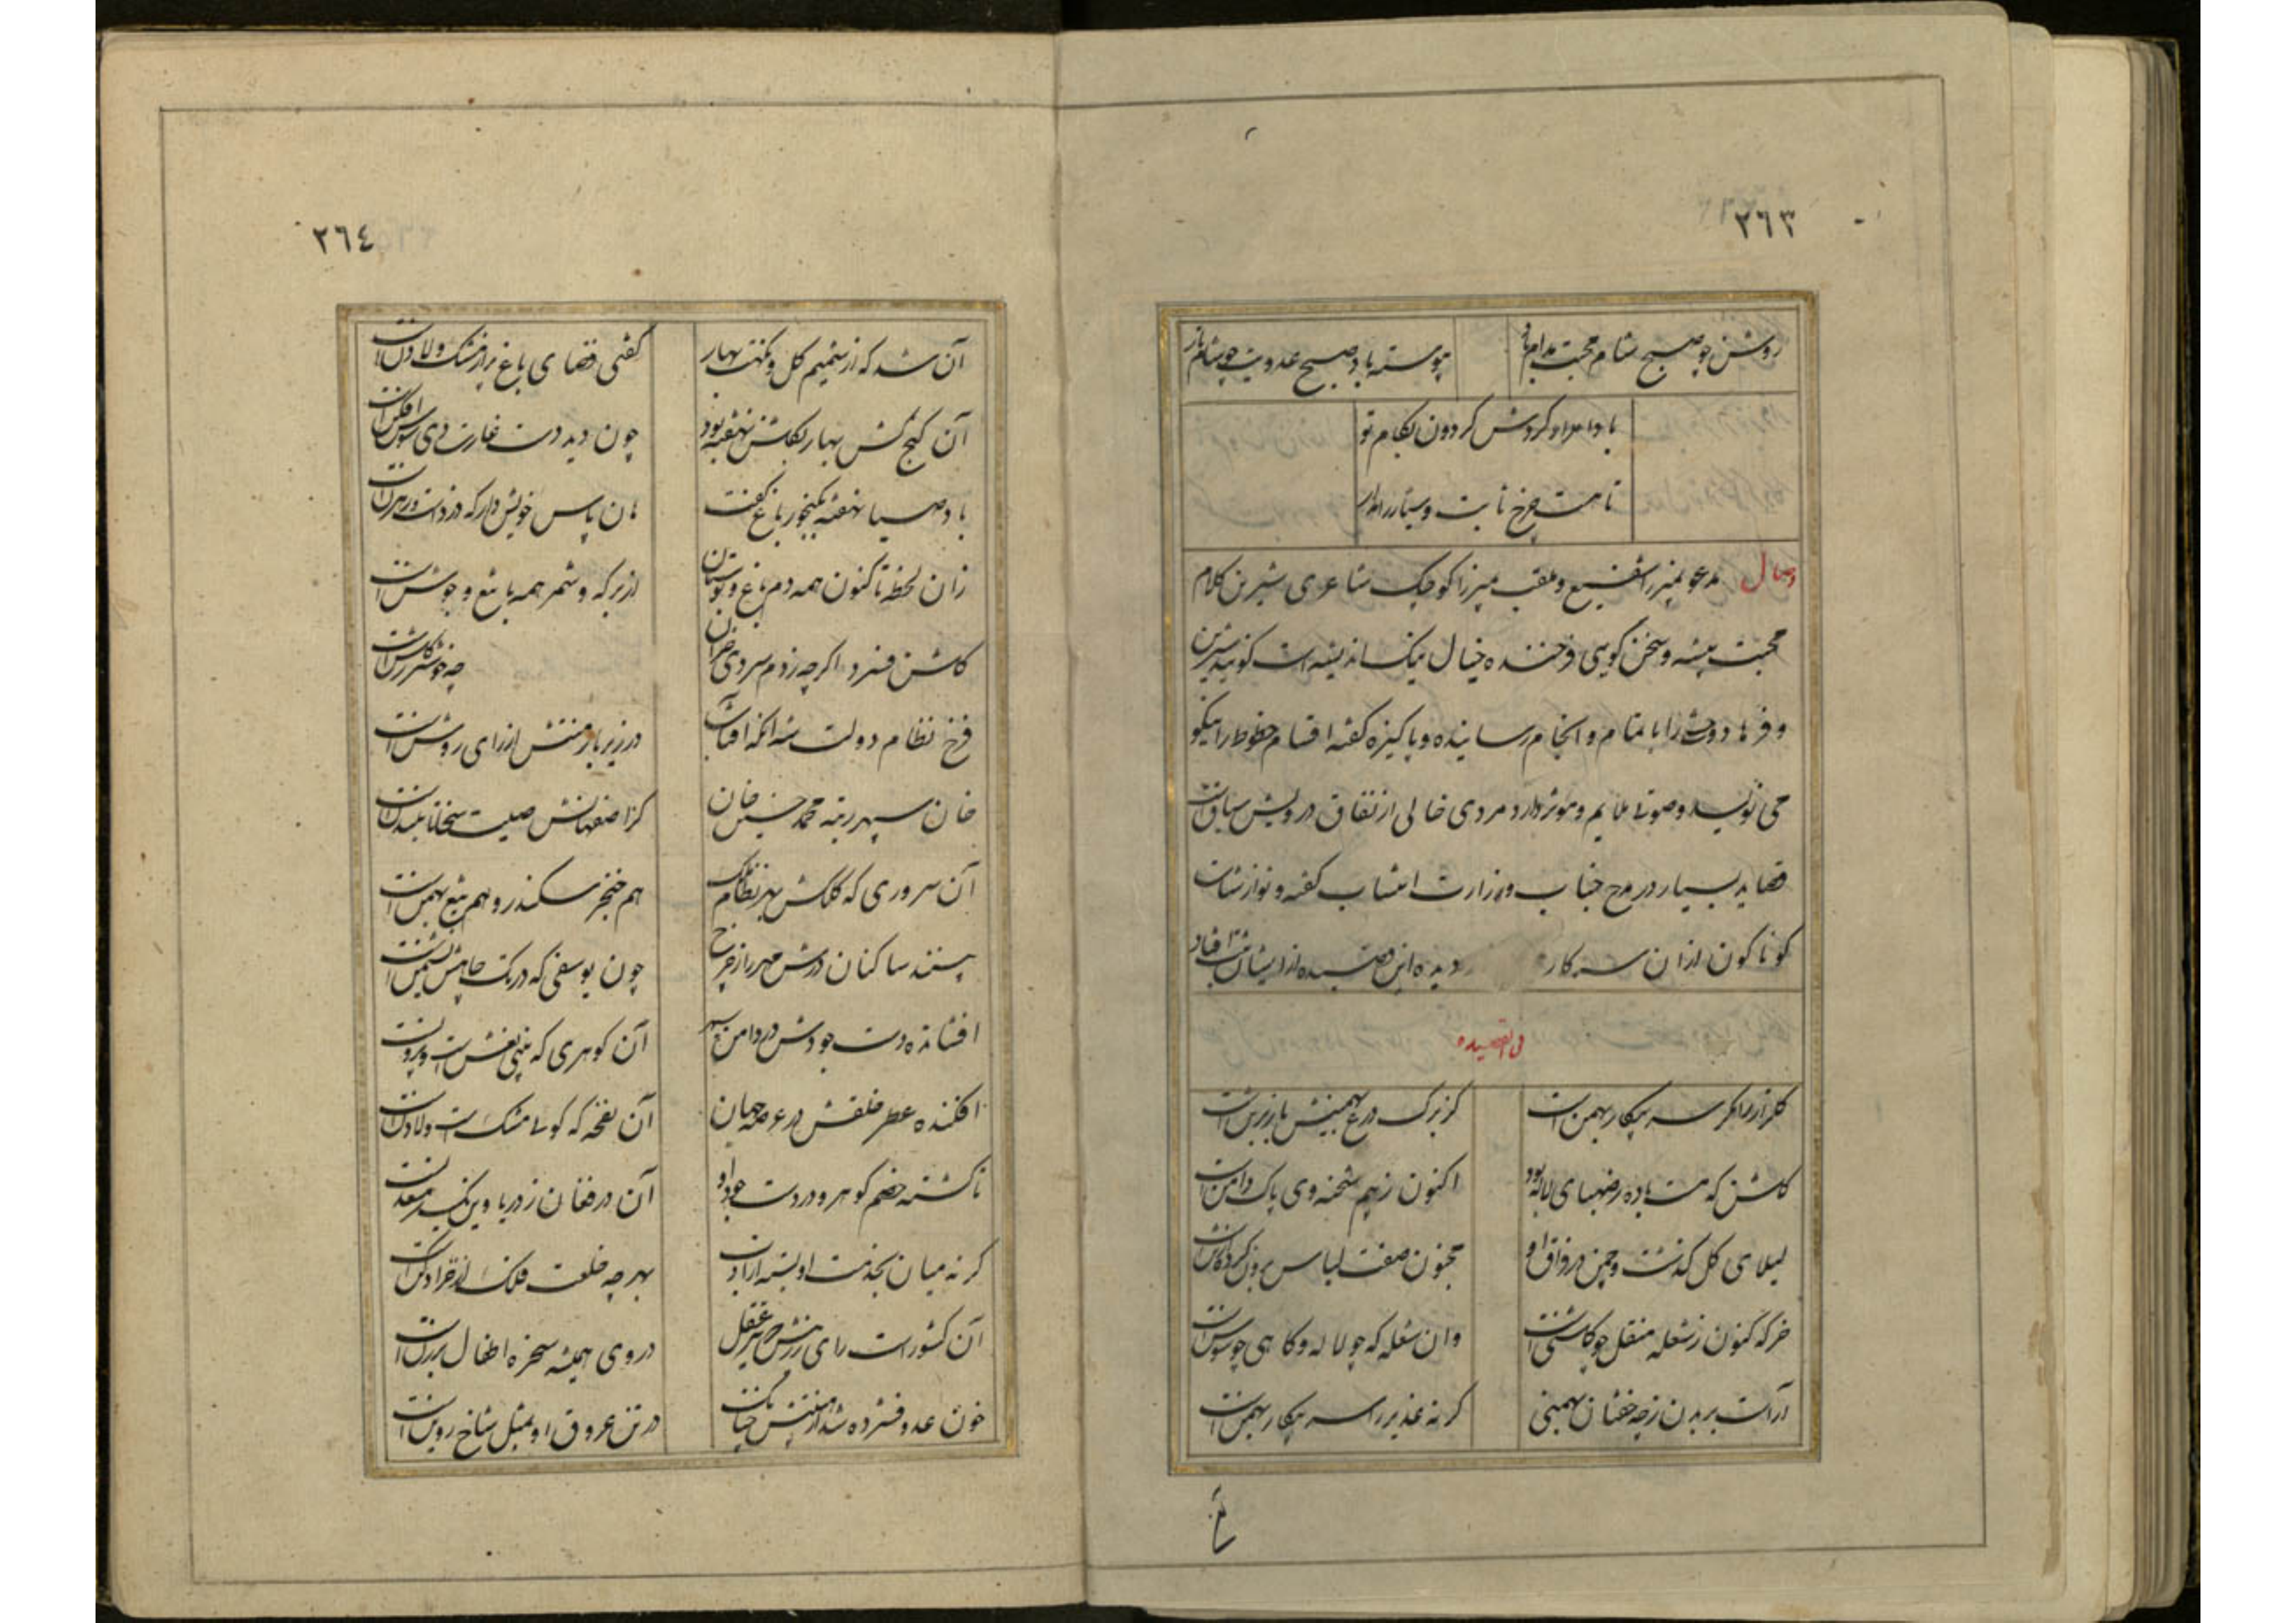 ٢٦٣
روشن چو صبح شام محبت مدام باد
پیوسته باد صبح عدویت چو شام تار
بادا مراد کردش کردون بکام تو
تا هست چرخ ثابت و سیار را مدار
وصال مدعو بمیرزا شفیع و ملقب بمیرزا کوچک شاعری شیرین کلام
محبت پیشه و سخن کویی فرخنده خیال نیک اندیشه است کویند شیرین
و فرهاد وحشی را باتمام و انجام رسانیده و پاکیزه کفته اقسام خطوط را نیکو
می نویسد و صوتی ملایم و موثر دارد مردی خالی از نفاق درویش سیاق است
قصاید بسیار در مدح جناب وزارت انتساب کفته و نوازشات
کوناکون از ان سرکار دیده این قصیده از ایشان ثبت افتاد
فی القصیده
کلزار را مکر سر پیکار بهمن است
کز برک درع بهمنیش بار زین است
کلشن که مست باده ز صهبای لاله بود
اکنون ز بیم شحنه وی پاک دامن است
لیلای کل کذشت و چمن در فراق او
مجنون صفت لباس برون کرده از تن است
خرکه کنون ز شعله منقل چو کلشنی است
وان شعله که چو لاله و کاهی چو سوسن است
آراست بر بدن زچه خفتان بهمنی
کر نه غدیر را سر پیکار بهمن است
٢٦٤
آن شد که از شمیم کل و نکهت بهار
کفتی فضای باغ پر از مشک و لادن است
آن کنج کش بهار بکلشن نهفته بود
چون دید دست غارت دی سوسن افکن است
باد صبا نهفته بکنجور باغ کفت
هان پاس خویش دار که دزدت رهزن است
زان لحظه تا کنون همه دم باغ و بوستان
از برکه و شمر همه با تیغ و جوشن است
کلشن فسرد اکرچه ز دم سردی خزان
چه خوشتر ز کلشن است
فرخ نظام دولت شه آنکه آفتاب
در زیر بار منتش از رای روشن است
خان سپهر رتبه محمد حسین خان
کز اصفهانش صیت سخا تا بلندن است
آن سروری که کلکش بهر نظام ملک
هم خنجر سکندر و هم تیغ بهمن است
بینند ساکنان درش مهر را ز چرخ
چون یوسفی که در تک چاهش نشیمن است
افشانده دست جودش در دامن سپهر
آن کوهری که بینی نعش است و پرون است
افکنده عطر خلقش در عرصه جهان
آن نفخه که کوئی مشک است و لادن است
ناکشته خصم کوهر و زر دست جود او
آن در فغان ز دریا وین یک ز معدن است
کر نه میان بخدمت او بسته از ارادت
بهر چه خلعت فلک
آن کشور است رای رزینش که پیر عقل
در وی همیشه سخره اطفال برزن است
خون عدو فسرده شد از
در تن عروق او بمثل شاخ روین است